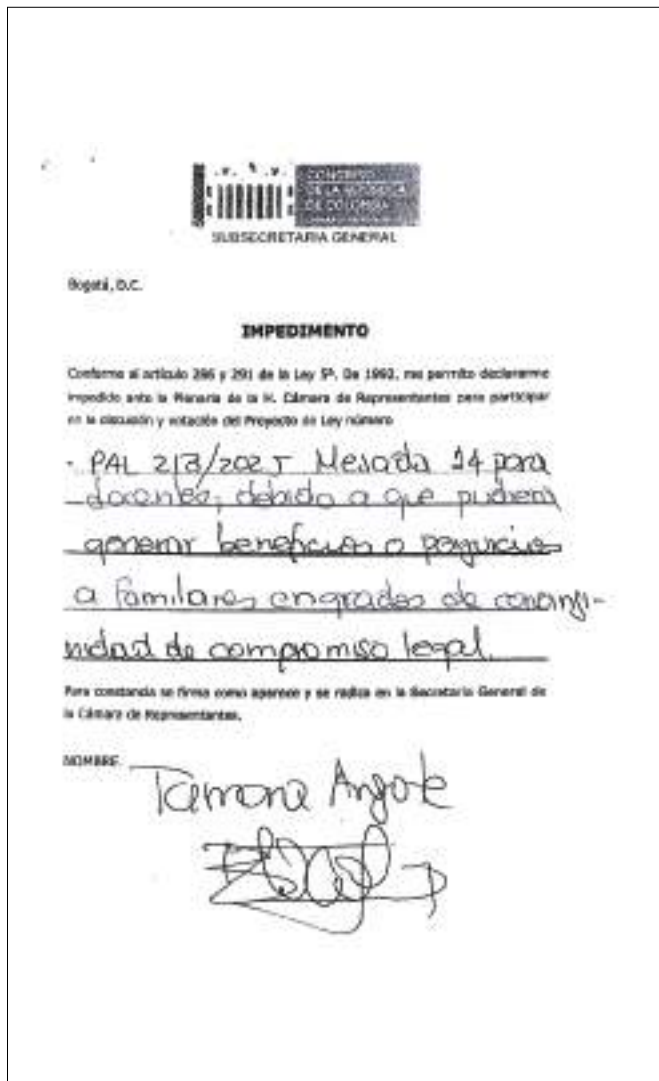 CONGRESO
DE LA REPÚBLICA
DE COLOMBIA
SUBSECRETARIA GENERAL
Bogotá, D.C.
IMPEDIMENTO
Conforme al artículo 286 y 291 de la Ley 5ª. De 1992, me permito declararme
impedido ante la Plenaria de la H. Cámara de Representantes para participar
en la discusión y votación del Proyecto de Ley número
- PAL 213/2025 Mesada 14 para
docentes, debido a que pudiera
generar beneficios o perjuicios
a familiares en grados de consangi-
nidad de compromiso legal.
Para constancia se firma como aparece y se radica en la Secretaria General de
la Cámara de Representantes.
NOMBRE
Tamara Argote